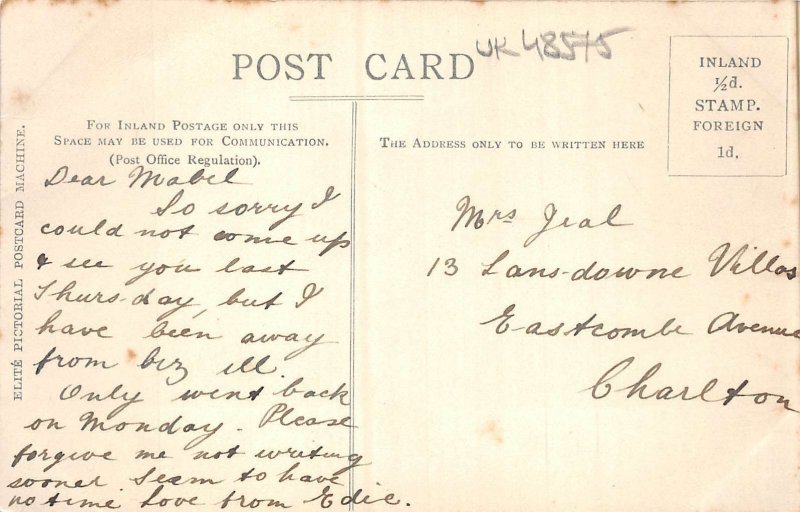 POST CARD
UK 48515
INLAND
½d.
STAMP.
FOREIGN
1d.
FOR INLAND POSTAGE ONLY THIS
SPACE MAY BE USED FOR COMMUNICATION.
(Post Office Regulation).
THE ADDRESS ONLY TO BE WRITTEN HERE
ELITÉ PICTORIAL POSTCARD MACHINE.
Dear Mabel
So sorry I
could not come up
& see you last
Thurs-day, but I
have been away
from biz ill.
Only went back
on Monday. Please
forgive me not writing
sooner seem to have
no time Love from Edie.
Mrs Jeal
13 Lans-downe Villas
Eastcombe Avenue
Charlton